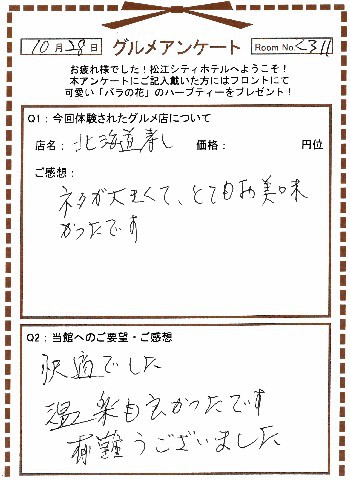 10月28日 グルメアンケート Room No.
お疲れ様でした！松江シティホテルへようこそ！
本アンケートにご記入戴いた方にはフロントにて
可愛い「バラの花」のハーブティーをプレゼント！
Q1：今回体験されたグルメ店について
店名：北海道寿し 価格： 円位
ご感想：
ネタが大きくて、とてもお美味
かったです
Q2：当館へのご要望・ご感想
快適でした
温泉も良かったです
有難うございました